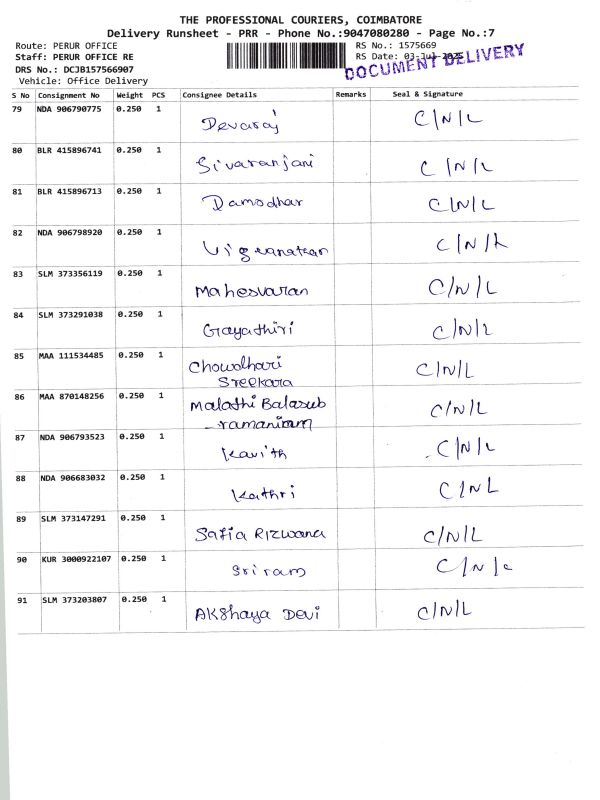 THE PROFESSIONAL COURIERS, COIMBATORE
Delivery Runsheet - PRR - Phone No.:9047080280 - Page No.:7
Route: PERUR OFFICE
RS No.: 1575669
Staff: PERUR OFFICE RE
RS Date: 03-Jul-2025
DOCUMENT DELIVERY
DRS No.: DCJB157566907
Vehicle: Office Delivery
S No Consignment No Weight PCS Consignee Details Remarks Seal & Signature
79 NDA 906790775 0.250 1 Devaraj C/N/L
80 BLR 415896741 0.250 1 Sivaranjani C/N/L
81 BLR 415896713 0.250 1 Damodhar C/N/L
82 NDA 906798920 0.250 1 C/N/L
83 SLM 373356119 0.250 1 Mahesvaran C/N/L
84 SLM 373291038 0.250 1 Gayathiri C/N/L
85 MAA 111534485 0.250 1 Chowdhari C/N/L
Sreekara
86 MAA 870148256 0.250 1 Malathi Balasub C/N/L
-ramaniam
87 NDA 906793523 0.250 1 Kavith C/N/L
88 NDA 906683032 0.250 1 Kathri C/N/L
89 SLM 373147291 0.250 1 Safia Rizwana C/N/L
90 KUR 3000922107 0.250 1 Sriram C/N/L
91 SLM 373203807 0.250 1 Akshaya Devi C/N/L